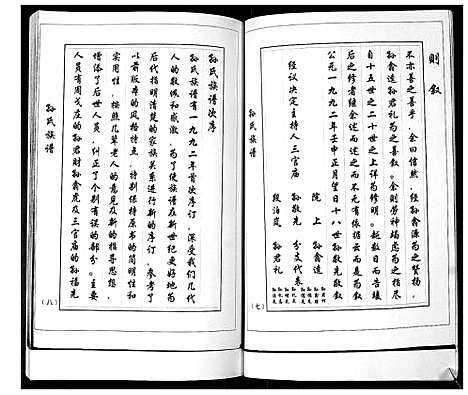 则叙
不亦善之善乎，余曰信然，经孙
孙禽逵孙君礼
自十五世之二十世之上详为修明。越数日而告竣
后之修者继余述而述之而不无有依据云而是为叙
公元一九九二年壬申正月望日十八世孙敬先敬叙
经议决定主持人三官庙
孙敬先
孙君礼
段泊岚
院上
孙禽逵
分支代表
孙氏族谱
（七）
孙氏族谱次序
孙氏族谱一九九二年首次序订，深受我们几代
人的敬佩和感激，为了使族谱在新世纪更好地为
后代指明清楚的家族关系进行新的序订，参考了
以前版本的风格特点，特别保持原书的简明性和
实用性，按照几辈老人的意见及新的指导思想，
增添了后世人员，纠正了个别有误的部分。主要
人员有周戈庄的孙君财孙禽虎及三官庙的孙福先
孙氏族谱
（八）